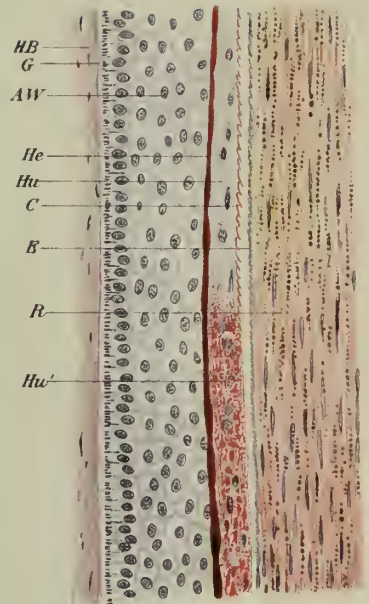 HB
G
AW
He
Hu
C
R
Hw'